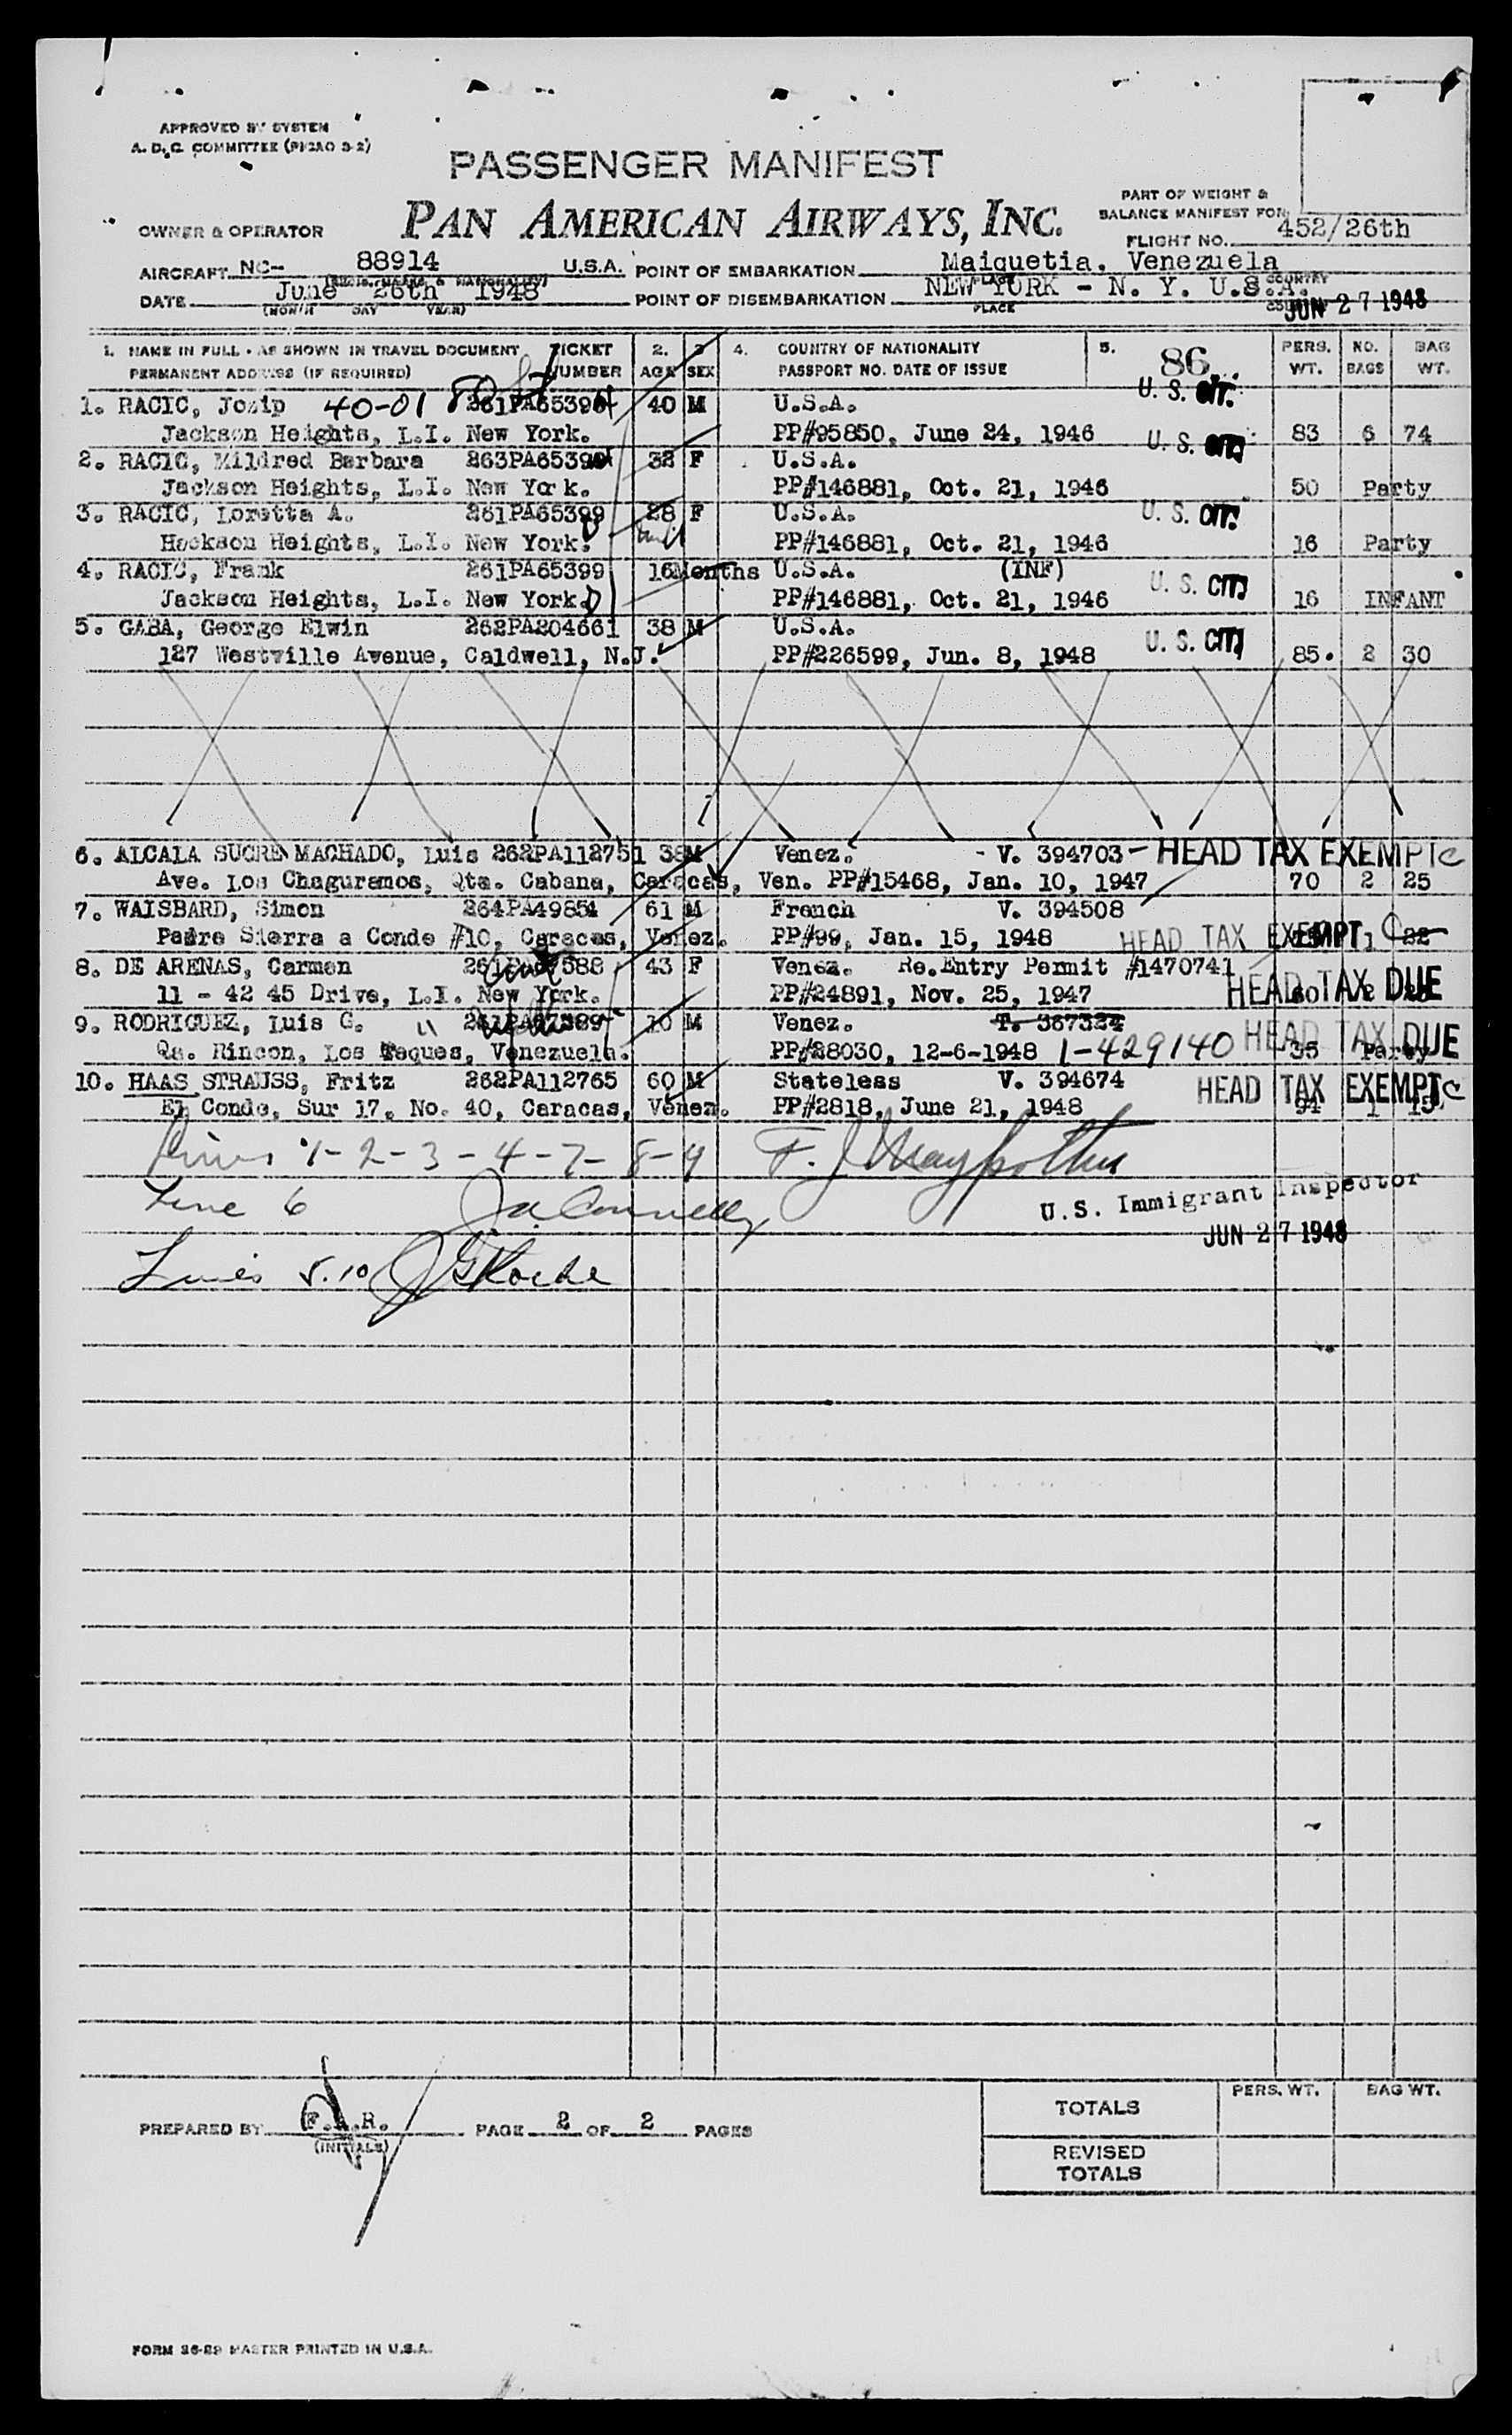 APPROVED BY SYSTEM
A. D. C. COMMITTEE (PICAO 3-2)
PASSENGER MANIFEST
PAN AMERICAN AIRWAYS, INC.
PART OF WEIGHT &
BALANCE MANIFEST FOR
OWNER & OPERATOR
FLIGHT NO. 452/26th
AIRCRAFT NC- 88914 U.S.A. POINT OF EMBARKATION Maiquetia, Venezuela
DATE June 26th 1948 POINT OF DISEMBARKATION NEW YORK - N. Y. U.S.A.
(MONTH DAY YEAR) PLACE COUNTRY
JUN 27 1948
1. NAME IN FULL - AS SHOWN IN TRAVEL DOCUMENT TICKET 2. 3 4. COUNTRY OF NATIONALITY 5. 86 PERS. NO. BAG
PERMANENT ADDRESS (IF REQUIRED) NUMBER AGE SEX PASSPORT NO. DATE OF ISSUE WT. BAGS WT.
1. RACIC, Jozip 40-01 80 st 40 M U.S.A. U. S. CIT.
Jackson Heights, L.I. New York. PP#95850, June 24, 1946 83 6 74
2. RACIC, Mildred Barbara 32 F U.S.A. U. S. CIT.
Jackson Heights, L.I. New York. PP#146881, Oct. 21, 1946 50 Party
3. RACIC, Loretta A. 261PA65399 28 F U.S.A. U. S. CIT.
Hackson Heights, L.I. New York. PP#146881, Oct. 21, 1946 16 Party
4. RACIC, Frank 261PA65399 16Months U.S.A. (INF) U. S. CIT.
Jackson Heights, L.I. New York. PP#146881, Oct. 21, 1946 16 INFANT
5. GABA, George Elwin 262PA204661 38 M U.S.A. U. S. CIT.
127 Westville Avenue, Caldwell, N.J. PP#226599, Jun. 8, 1948 85. 2 30
6. ALCALA SUCRE MACHADO, Luis 262PA112751 38 M Venez. - V. 394703 - HEAD TAX EXEMPT C
Ave. Los Chaguramos, Qta. Cabana, Caracas, Ven. PP#15468, Jan. 10, 1947 70 2 25
7. WAISBARD, Simon 264PA49854 61 M French V. 394508
Padre Sierra a Conde #10, Caracas, Venez. PP#99, Jan. 15, 1948 HEAD TAX EXEMPT 1 C 22
8. DE ARENAS, Carmen 43 F Venez. Re.Entry Permit #1470741
11 - 42 45 Drive, L.I. New York. PP#24891, Nov. 25, 1947 HEAD TAX DUE
9. RODRIGUEZ, Luis G. 10 M Venez. T. 387324
Qa. Rincon, Los Teques, Venezuela. PP#28030, 12-6-1948 1-429140 HEAD TAX DUE 35 Party
10. HAAS STRAUSS, Fritz 262PA112765 60 M Stateless V. 394674 HEAD TAX EXEMPT C
El Conde, Sur 17, No. 40, Caracas, Venez. PP#2818, June 21, 1948 94 1 15
Lines 1-2-3-4-7-8-9
Line 6 J A Connelly
U.S. Immigrant Inspector
JUN 27 1948
Lines 5.10 J G Roche
PREPARED BY F.A.R. PAGE 2 OF 2 PAGES
(INITIALS)
TOTALS PERS. WT. BAG WT.
REVISED
TOTALS
FORM 36-29 MASTER PRINTED IN U.S.A.